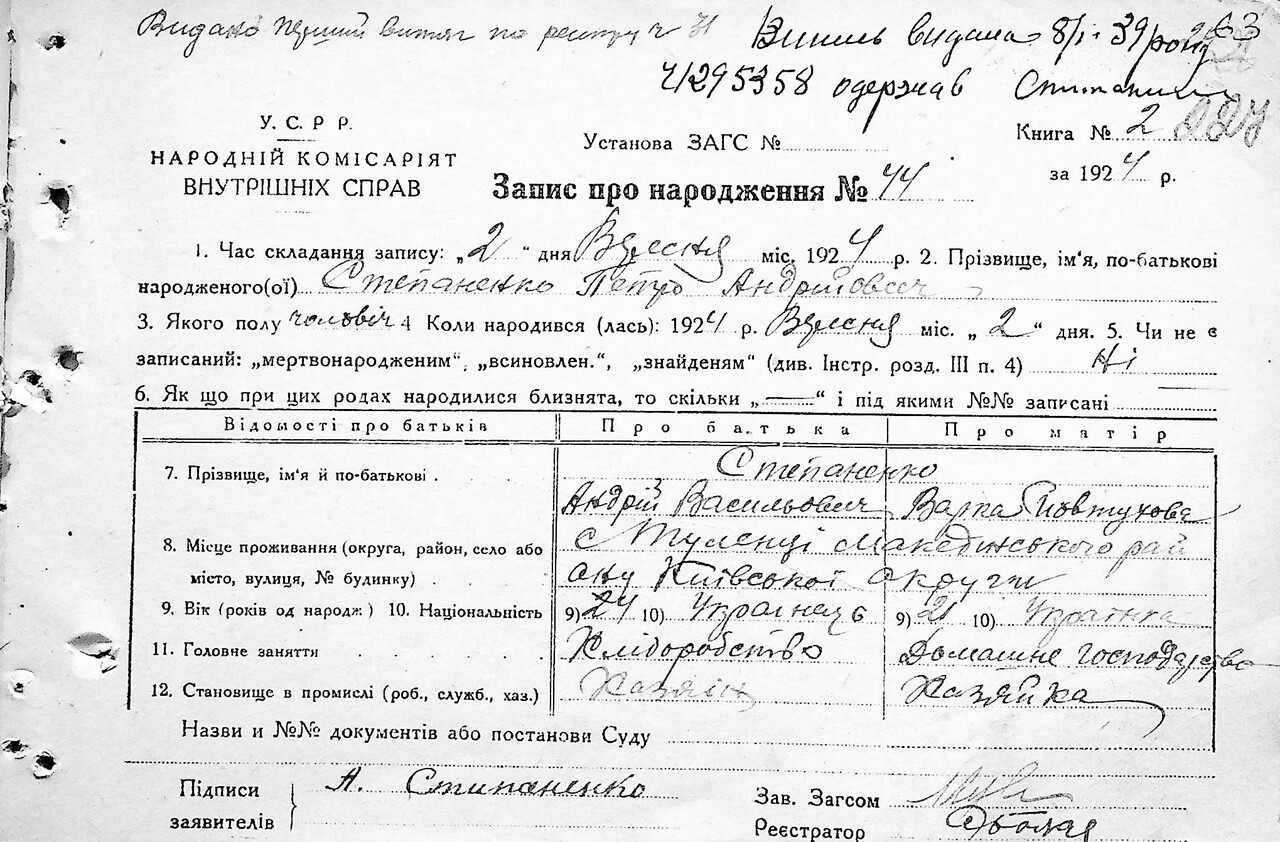 Видано перший витяг по реєстру ч
Випись видана 8/I 39 року 63
Ч1295358 одержав
227
У.С.Р Р.
НАРОДНІЙ КОМІСАРІЯТ
ВНУТРІШНІХ СПРАВ
Установа ЗАГС №
Книга № 2
за 1924 р.
Запис про народження № 44
1. Час складання запису: „2“ дня Вересня міс. 1924 р. 2. Прізвище, ім'я, по-батькові
народженого(ої) Степаненко Петро Андрійович
3. Якого полу чоловіч 4 Коли народився (лась): 1924 р. Вересня міс. „2“ дня. 5. Чи не є
записаний: „мертвонародженим“, „всиновлен.“, „знайденям“ (див. Інстр. розд. III п. 4) Ні
6. Як що при цих родах народилися близнята, то скільки „—“ і під якими №№ записані
Відомості про батьків Про батька Про матір
7. Прізвище, ім'я й по-батькові . Степаненко
Андрій Васильович Варка Йовтухова
8. Місце проживання (округа, район, село або с Туленці Македонського рай
місто, вулиця, № будинку) . ону Київської Округи
9. Вік (років од народж) 10. Національність 9) 24 10) Українець 9) 21 10) Українка
11. Головне заняття . . . . . Хліборобство Домашнє господарство
12. Становище в промислі (роб., служб., хаз.) Хазяїн Хазяйка
Назви и №№ документів або постанови Суду
Підписи
заявителів
А. Стипаненко
Зав. Загсом
Реєстратор